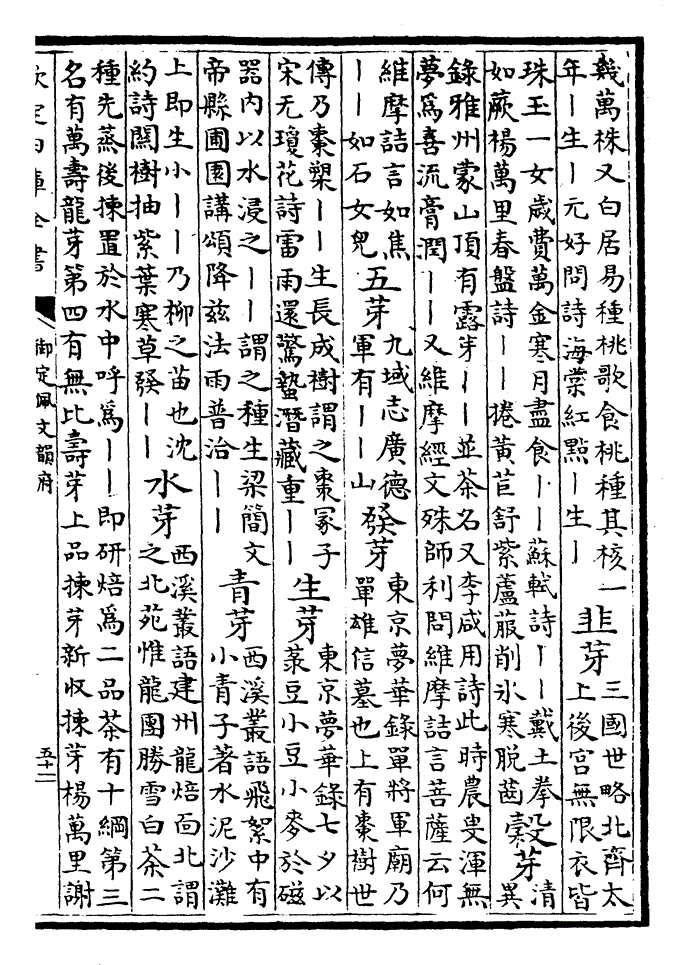 幾萬株又白居易種桃歌食桃種其核一
年丨生丨元好問詩海棠紅點丨生丨
韭芽
三國世略北齊太
上後宮無限衣皆
珠玉一女歲費萬金寒月盡食丨丨蘇軾詩丨丨戴土拳
如蕨楊萬里春盤詩丨丨捲黃苣舒紫蘆菔削氷寒脫齒
榖芽
清
異
錄雅州蒙山頂有露芽丨丨並茶名又李咸用詩此時農叟渾無
夢爲喜流膏潤丨丨又維摩經文殊師利問維摩詰言菩薩云何
維摩詰言如焦
丨丨如石女兒
五芽
九域志廣德
軍有丨丨山
發芽
東京夢華錄單將軍廟乃
單雄信墓也上有棗樹世
傳乃棗槊丨丨生長成樹謂之棗冢子
宋无瓊花詩雷雨還驚蟄潛藏重丨丨
生芽
東京夢華錄七夕以
菉豆小豆小麥於磁
器内以水浸之丨丨謂之種生梁簡文
帝縣圃園講頌降兹法雨普洽丨丨
青芽
西溪叢語飛絮中有
小青子著水泥沙灘
上即生小丨丨乃柳之苗也沈
約詩闗樹抽紫葉寒草發丨丨
水芽
西溪叢語建州龍焙面北謂
之北苑惟龍團勝雪白茶二
種先蒸後揀置於水中呼爲丨丨即研焙爲二品茶有十綱第三
名有萬壽龍芽第四有無比壽芽上品揀芽新收揀芽楊萬里謝
欽定四庫全書
御定佩文韻府
五十二